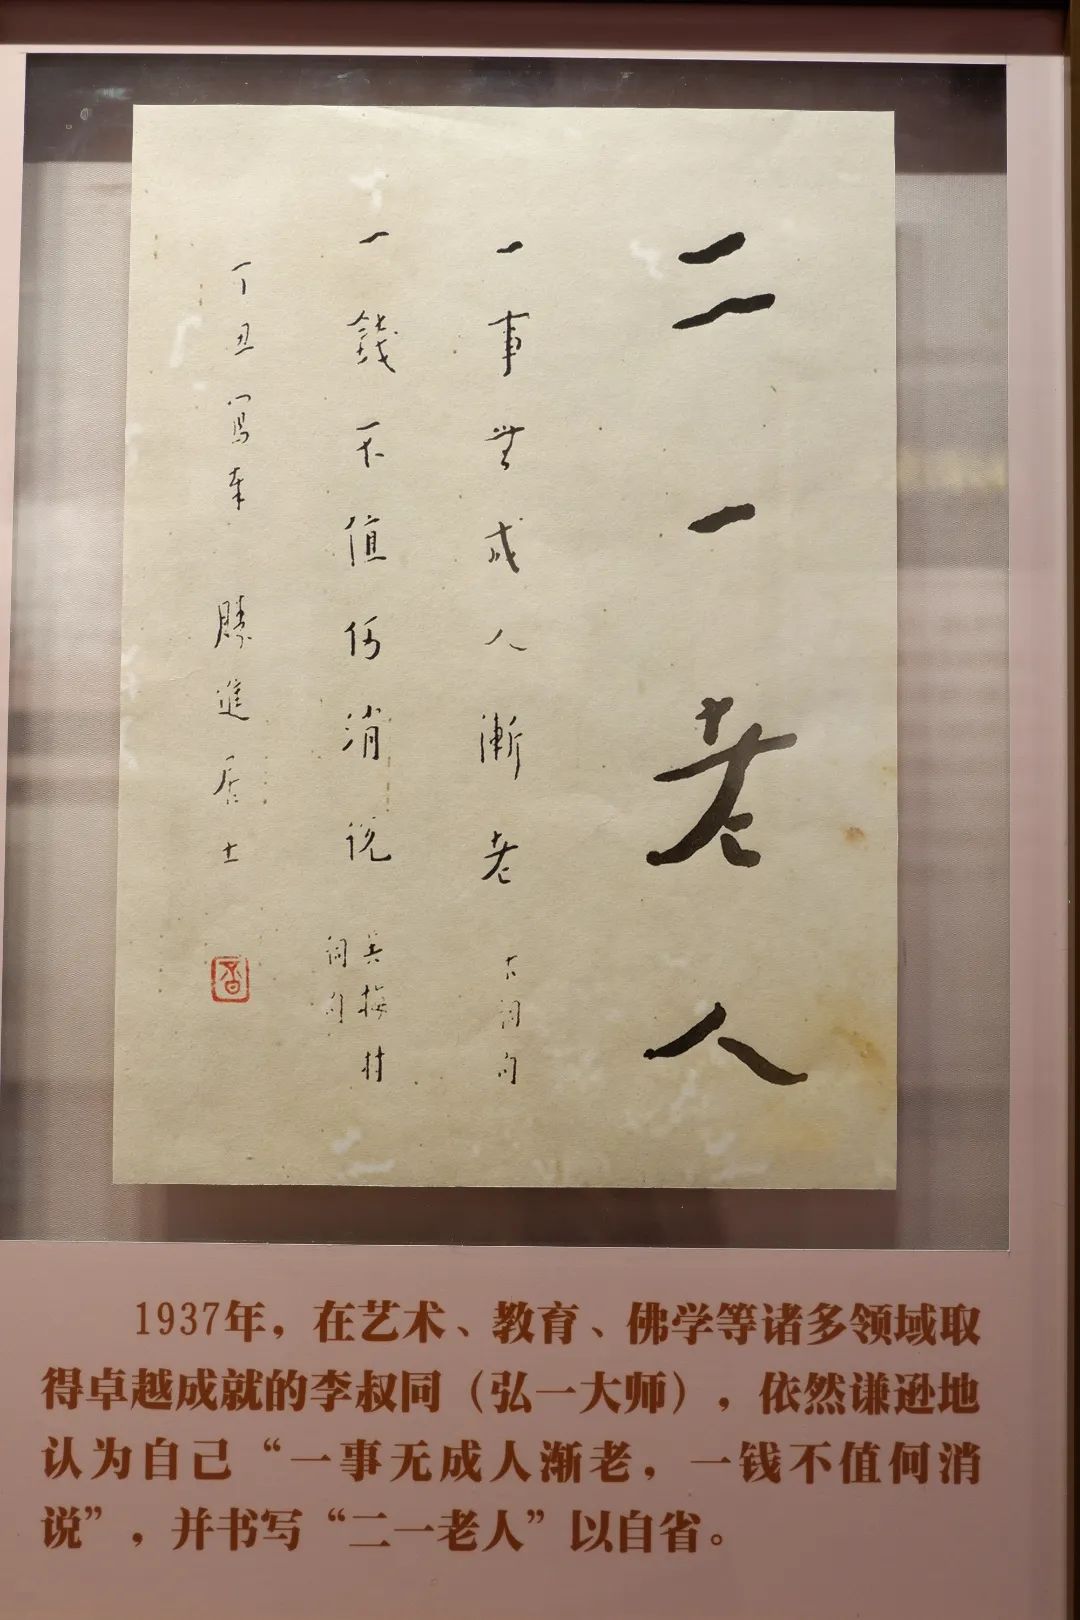 二一老人
一事無成人漸老
古詞句
一錢不值何消說
吳梅村
詞句
丁丑寫奉 勝進居士
1937年，在艺术、教育、佛学等诸多领域取
得卓越成就的李叔同（弘一大师），依然谦逊地
认为自己“一事无成人渐老，一钱不值何消
说”，并书写“二一老人”以自省。